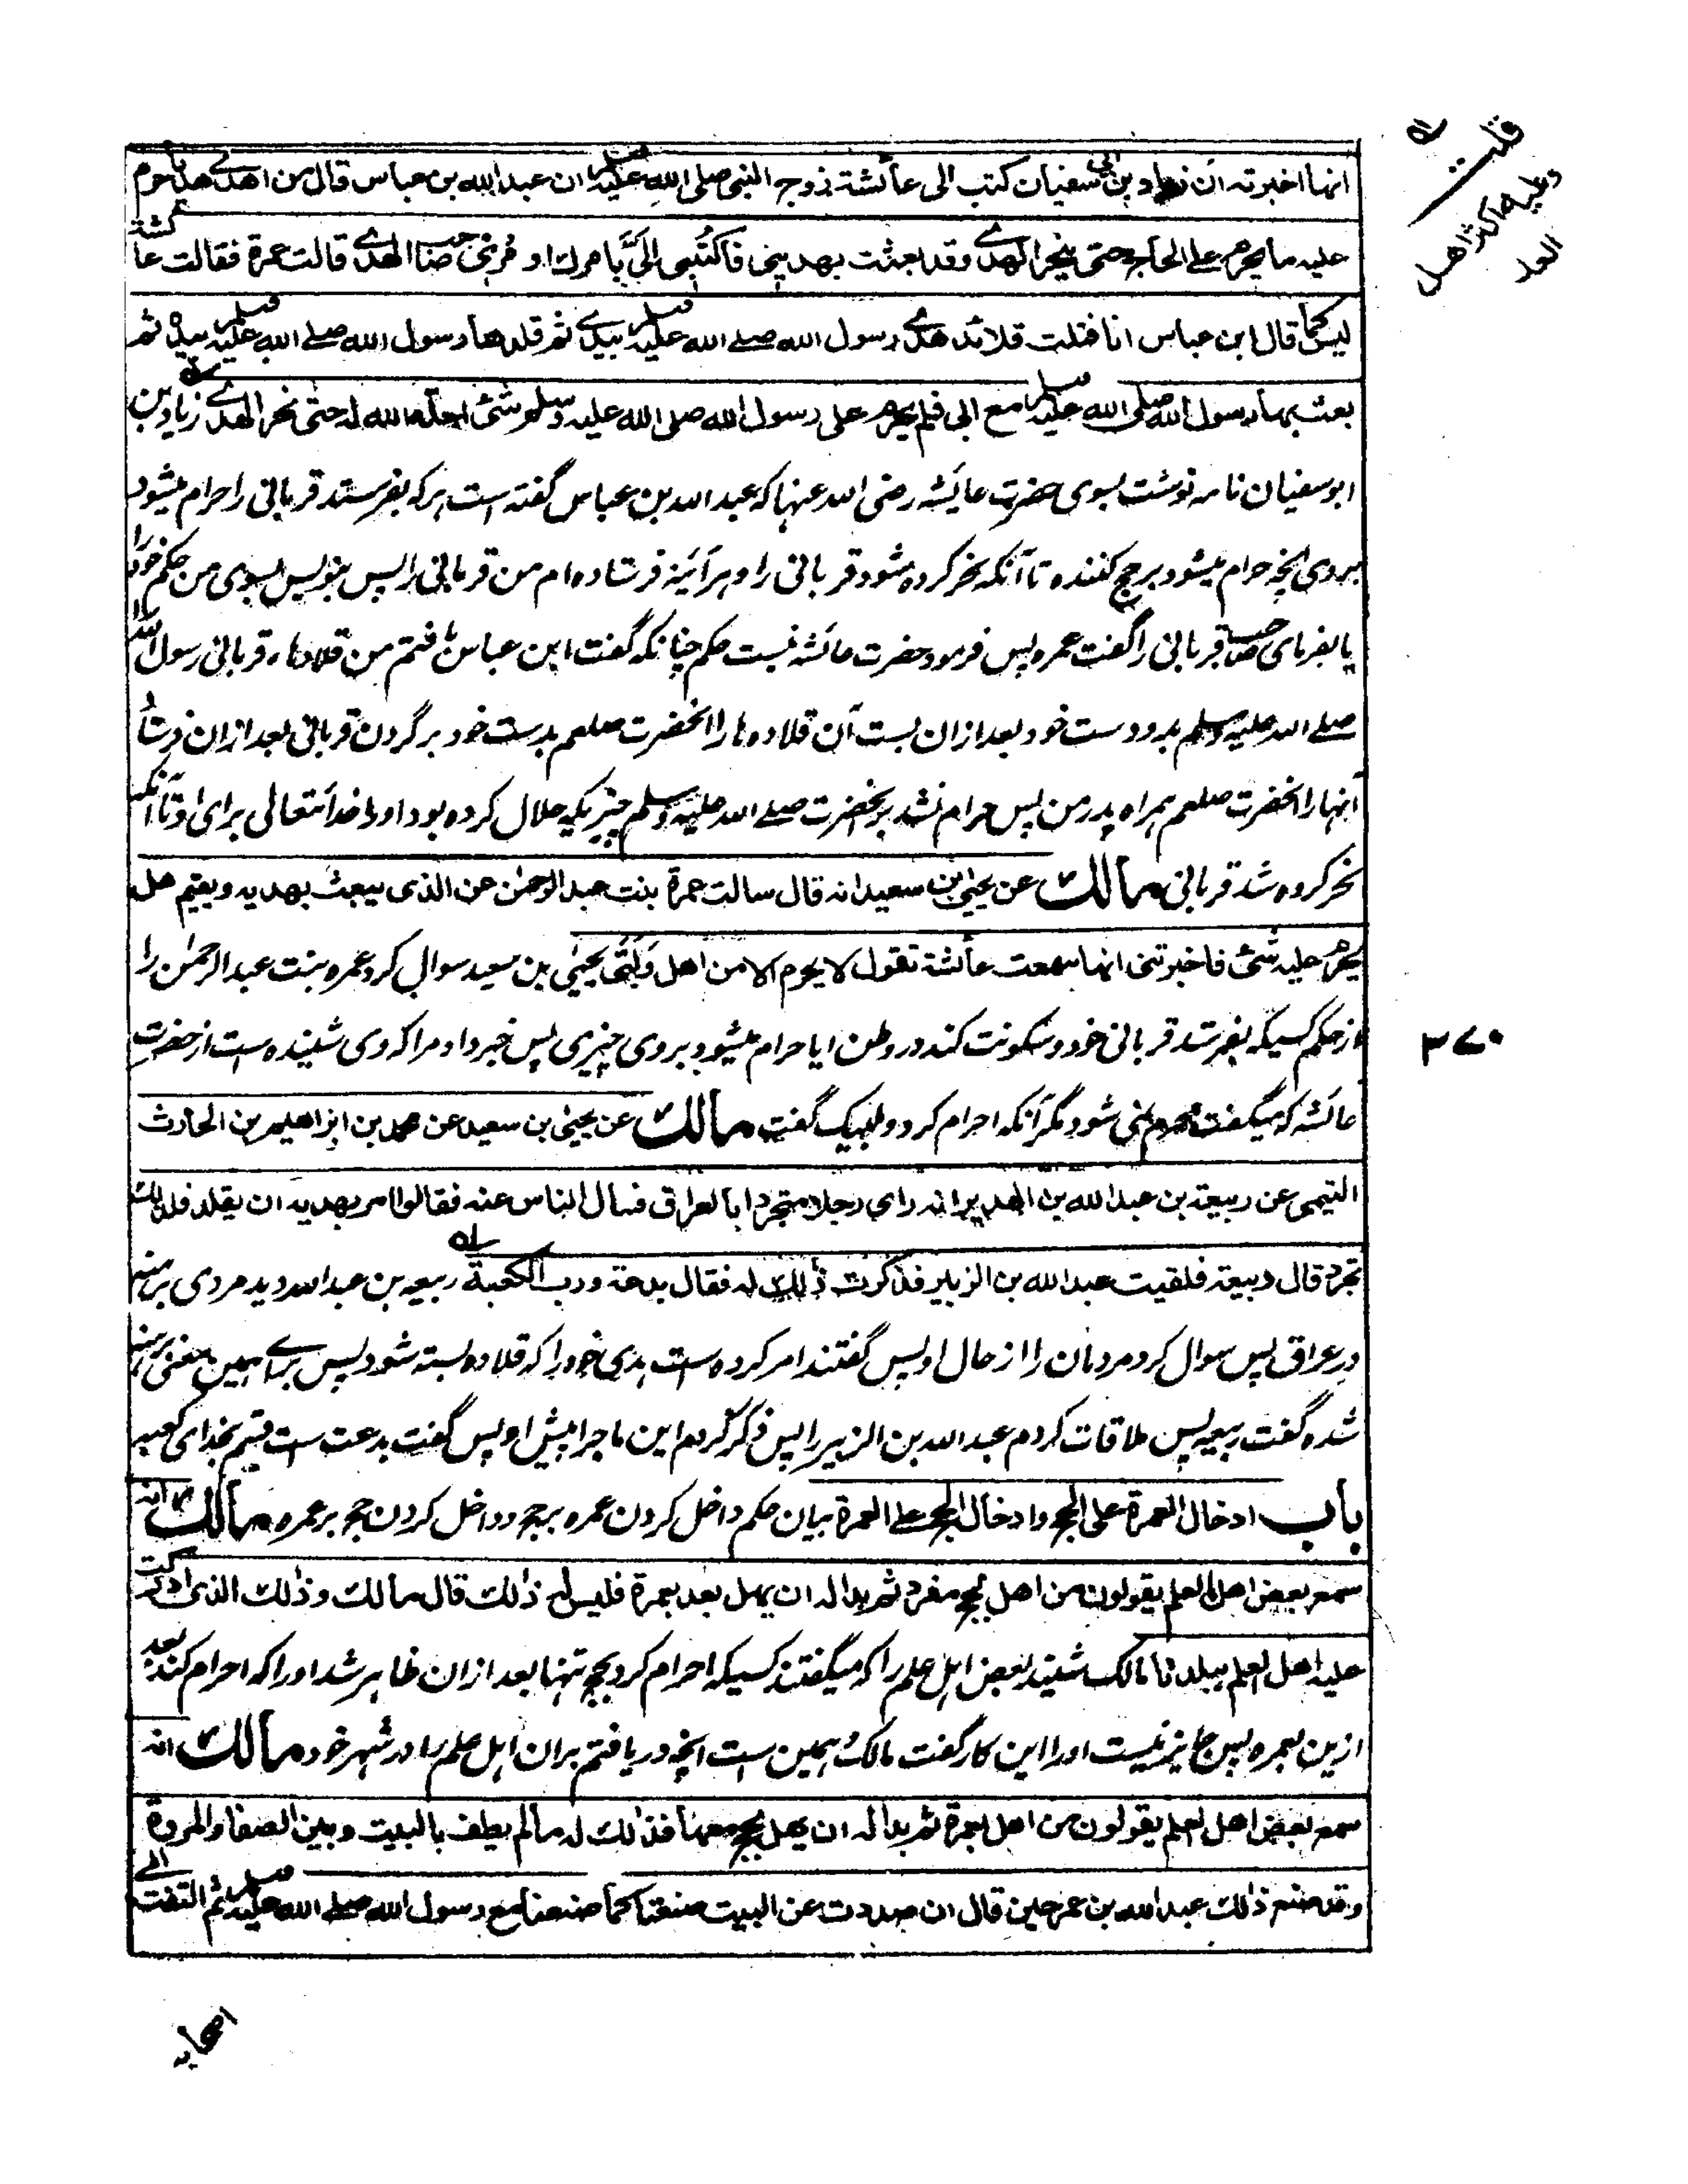 انها اخبرته ان زياد بن ابى سفيان كتب الى عائشة زوج النبى صلى الله عليه وسلم ان عبد الله بن عباس قال من اهدى هديا حرم
عليه ما يحرم على الحاج حتى ينحر الهدى وقد بعثت بهديى فاكتبى الىّ بامرك او مُرى صاحب الهدى قالت عمرة فقالت عائشة
ليس كما قال ابن عباس انا فتلت قلائد هدى رسول الله صلے الله عليه وسلم بيدى ثم قلدها رسول الله صلے الله عليه وسلم بيده ثم
بعث بها رسول الله صلى الله عليه وسلم مع ابى فلم يحرم على رسول الله صلى الله عليه وسلم شئ احلّه الله له حتى نحر الهدى زياد بن
ابو سفيان نامه نوشت بسوى حضرت عايشه رضى الله عنها كه عبد الله بن عباس گفته است هر كه بفرستد قربانى را حرام ميشود
بروى انچه حرام ميشود بر حج كننده تا آنكه نحر كرده شود قربانى را و هر آئينه فرستاده ام من قربانى را پس بنويس بسوى من حكم خود را
يا بفرماى صاحب قربانى را گفت عمره پس فرمود حضرت عائشه نيست حكم چنانكه گفت ابن عباس بافتم من قلادهاء قربانى رسول الله را
صلے الله عليه وسلم بدو دست خود بعد ازان بست آن قلاده ها را آنحضرت صلعم بدست خود بر گردن قربانى بعد ازان فرستاد
آنها را آنحضرت صلعم همراه پدر من پس حرام نشد بر آنحضرت صلے الله عليه وسلم چيزيكه حلال كرده بود او را خدا تعالى براى او تا آنكه
نحر كرده شد قربانى مالك عن يحيى بن سعيد انه قال سالت عمرة بنت عبد الرحمٰن عن الذى يبعث بهديه ويقيم هل
يحرم عليه شئ فاخبرتنى انها سمعت عائشة تقول لا يحرم الا من اهل ولَبّى يحيىٰ بن سعيد سوال كرد عمره بنت عبد الرحمٰن را
از حكم كسيكه بفرستد قربانى خود و سكونت كند در وطن ايا حرام ميشود بروى چيزى پس خبر داد مرا كه وى شنيده است از حضرت
عائشه كه ميگفت محرم نمى شود مگر آنكه احرام كرد و لبيك گفت مالك عن يحيىٰ بن سعيد عن محمد بن ابراهيم بن الحارث
التيمى عن ربيعة بن عبد الله بن الهدير انه راى رجلا متجردا بالعراق فسال الناس عنه فقالوا امر بهديه ان يقلد فلذلك
تجرد قال ربيعة فلقيت عبد الله بن الزبير فذكرت ذٰلك له فقال بدعة ورب الكعبة ربيعه بن عبد الله ديد مردى برهنه
در عراق پس سوال كرد مردمان را از حال او پس گفتند امر كرده است بهدى خود را كه قلاده بسته شود پس براے همين معنى برهنه
شده گفت ربيعه پس ملاقات كردم عبد الله بن الزبير را پس ذكر كردم اين ماجرا پيش او پس گفت بدعت است قسم بخداى كعبه
باب ادخال العمرة على الحج وادخال الحج على العمرة بيان حكم داخل كردن عمره بر حج و داخل كردن حج بر عمره مالك انه
سمع بعض اهل العلم يقولون من اهل بحج مفرد ثم بدا له ان يهل بعد بعمرة فليس له ذٰلك قال مالك وذٰلك الذى ادركت
عليه اهل العلم ببلدنا مالك شنيد بعض اهل علم را كه ميگفتند كسيكه احرام كرد بحج تنها بعد ازان ظاهر شد او را كه احرام كند بعد
ازين بعمره پس جايز نيست او را اين كار گفت مالك همين است انچه دريافتم بران اهل علم را در شهر خود مالك انه
سمع بعض اهل العلم يقولون من اهل بعمرة ثم بدا له ان يهل بحج معها فذٰلك له ما لم يطف بالبيت وبين الصفا والمروة
وقد صنع ذٰلك عبد الله بن عمر حين قال ان صددت عن البيت صنعنا كما صنعنا مع رسول الله صلے الله عليه وسلم ثم التفت الى
قلت
وعليه اكثر اهل
العلم
٣٧٠
اصحابه